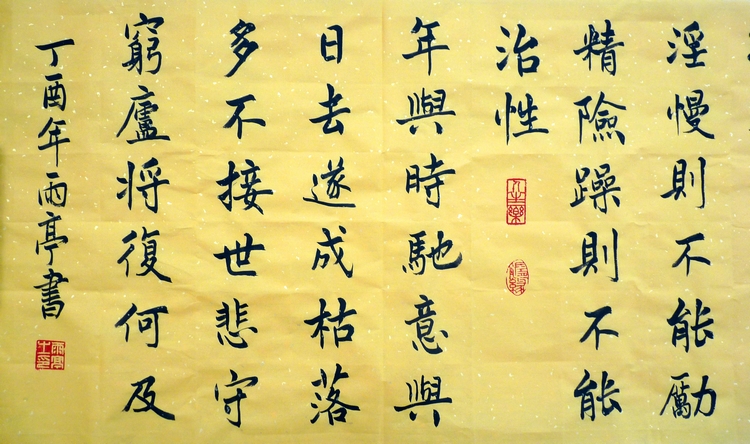 淫慢則不能勵
精險躁則不能
治性
年與時馳意與
日去遂成枯落
多不接世悲守
窮廬將復何及
丁酉年雨亭書